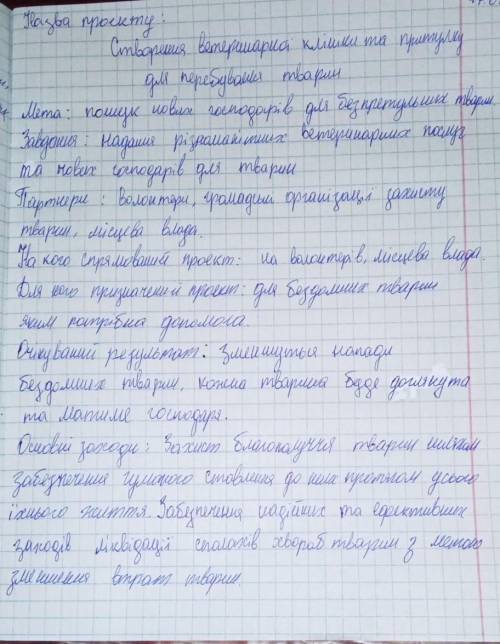 Назва проєкту:
Створення ветеринарної клініки та притулку
для перебування тварин
Мета: пошук нових господарів для безпритульних тварин
Завдання: надання різноманітних ветеринарних послуг
та нових господарів для тварин
Партнери: волонтери, громадські організації захисту
тварин, місцева влада.
На кого спрямований проект: на волонтерів, місцева влада.
Для кого призначений проект: для бездомних тварин
яким потрібна допомога.
Очікуваний результат: зменшуться напади
бездомних тварин, кожна тварина буде доглянута
та матиме господаря.
Основні заходи: Захист благополуччя тварин шляхом
забезпечення гуманого ставлення до них протягом усього
їхнього життя. Забезпечення надійних та ефективних
заходів ліквідації спалахів хвороб тварин з метою
зменшення втрат тварин.